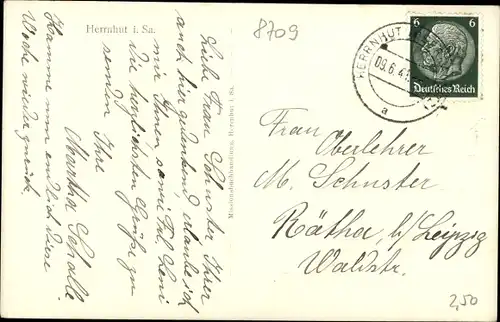 Herrnhut i. Sa.
8709
6 6
Deutsches Reich
HERRNHUT
09.6.41
a
Liebe Frau Schuster! Ihrer
auch hier gedenkend, erlaube ich
mir Ihnen sowie Frl.
die herzlichsten Grüße zu
senden Ihre
Martha Schalle
Komme nun endlich diese
Woche wieder zurück.
Missionsbuchhandlung, Herrnhut i. Sa.
Frau
Oberlehrer
M. Schuster
Rötha b/Leipzig
Waldstr.
2,50